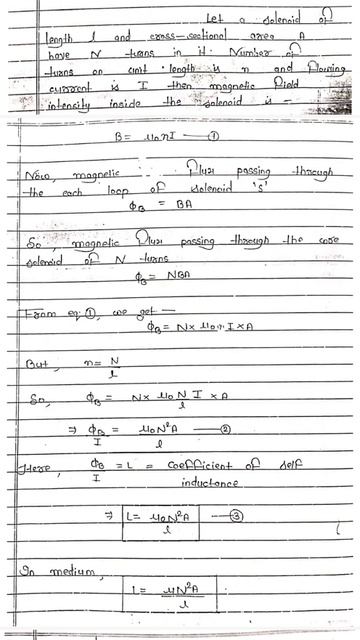 Let a solenoid of
length l and cross-sectional area A
have N turns in it. Number of
turns on unit length is n and flowing
current is I then magnetic field
intensity inside the solenoid is -
B = μ₀nI —①
Now, magnetic flux passing through
the each loop of solenoid 's'
ϕ_B = BA
So, magnetic flux passing through the core
solenoid of N turns
ϕ_B = NBA
From eqⁿ ①, we get —
ϕ_B = N × μ₀n I × A
But, n = N/l
So, ϕ_B = N × μ₀ N/l I × A
⇒ ϕ_B/I = μ₀N²A/l —②
Here, ϕ_B/I = L = coefficient of self
inductance
⇒ L = μ₀N²A/l —③
In medium,
L = μN²A/l